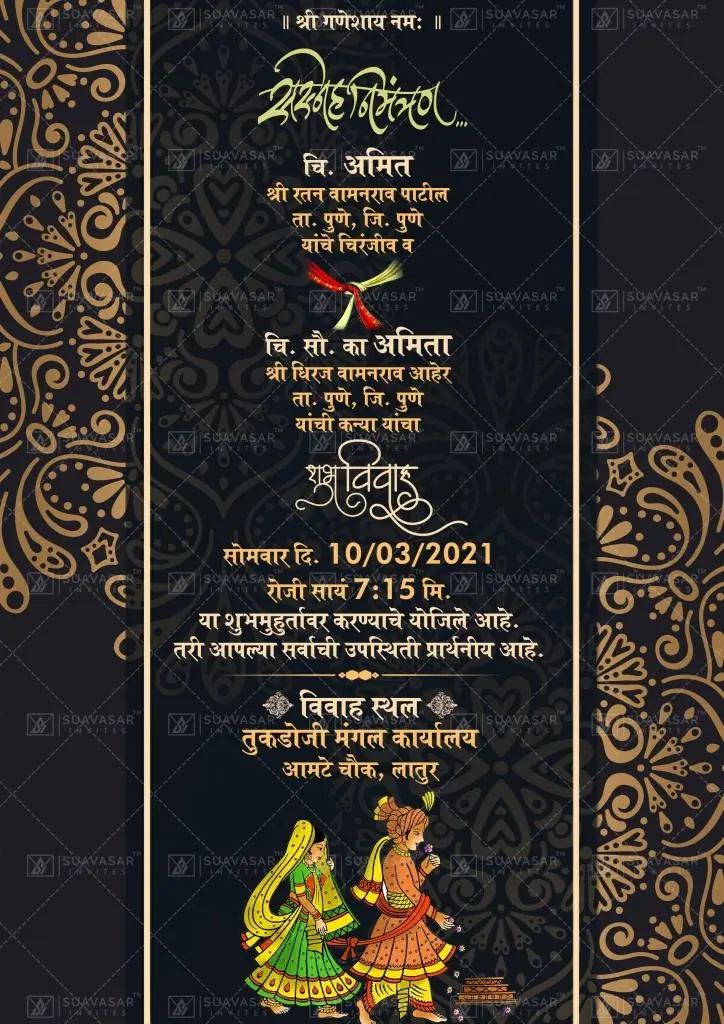 ॥ श्री गणेशाय नमः ॥
सस्नेह निमंत्रण...
चि. अमित
श्री रतन वामनराव पाटील
ता. पुणे, जि. पुणे
यांचे चिरंजीव व
चि. सौ. का अमिता
श्री धिरज वामनराव आहेर
ता. पुणे, जि. पुणे
यांची कन्या यांचा
शुभ विवाह
सोमवार दि. 10/03/2021
रोजी सायं 7:15 मि.
या शुभमुहुर्तावर करण्याचे योजिले आहे.
तरी आपल्या सर्वाची उपस्थिती प्रार्थनीय आहे.
विवाह स्थल
तुकडोजी मंगल कार्यालय
आमटे चौक, लातुर
SUAVASAR INVITES